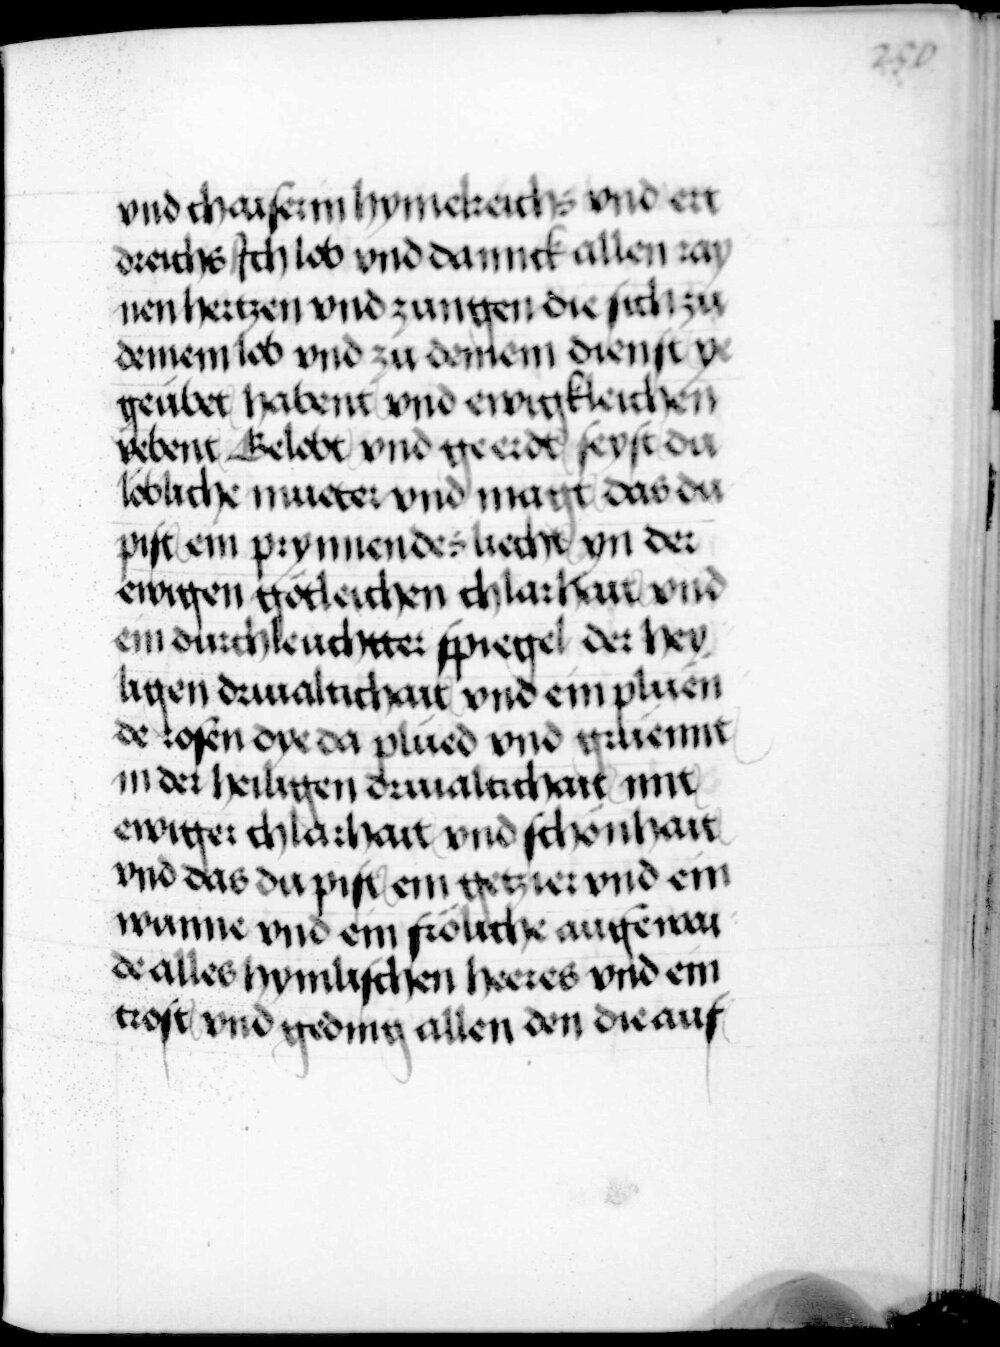 250
vnd chaiserinn hymelreichs vnd ert
dreichs Ich lob vnd dannck allen ray
nen hertzen vnd zungen die sich zu
deinem lob vnd zu deinem dienst ye
geübet habent vnd ewigkleichen
vebent Gelobt vnd geerdt seyst du
löbliche mueter vnd magt das du
pist ein prynnendes liecht yn der
ewigen götleichen chlarhait vnd
ein durchleuchtter spiegel der hey
ligen driualtichait vnd ein plüen
de rosen dye da plüed vnd grüennt
in der heiligen driualtichait mit
ewiger chlarhait vnd schönhait
vnd das du pist ein getzier vnd ein
wunne vnd ein fröliche augenwai
de alles hymlischen heeres vnd ein
trost vnd geding allen den die auf